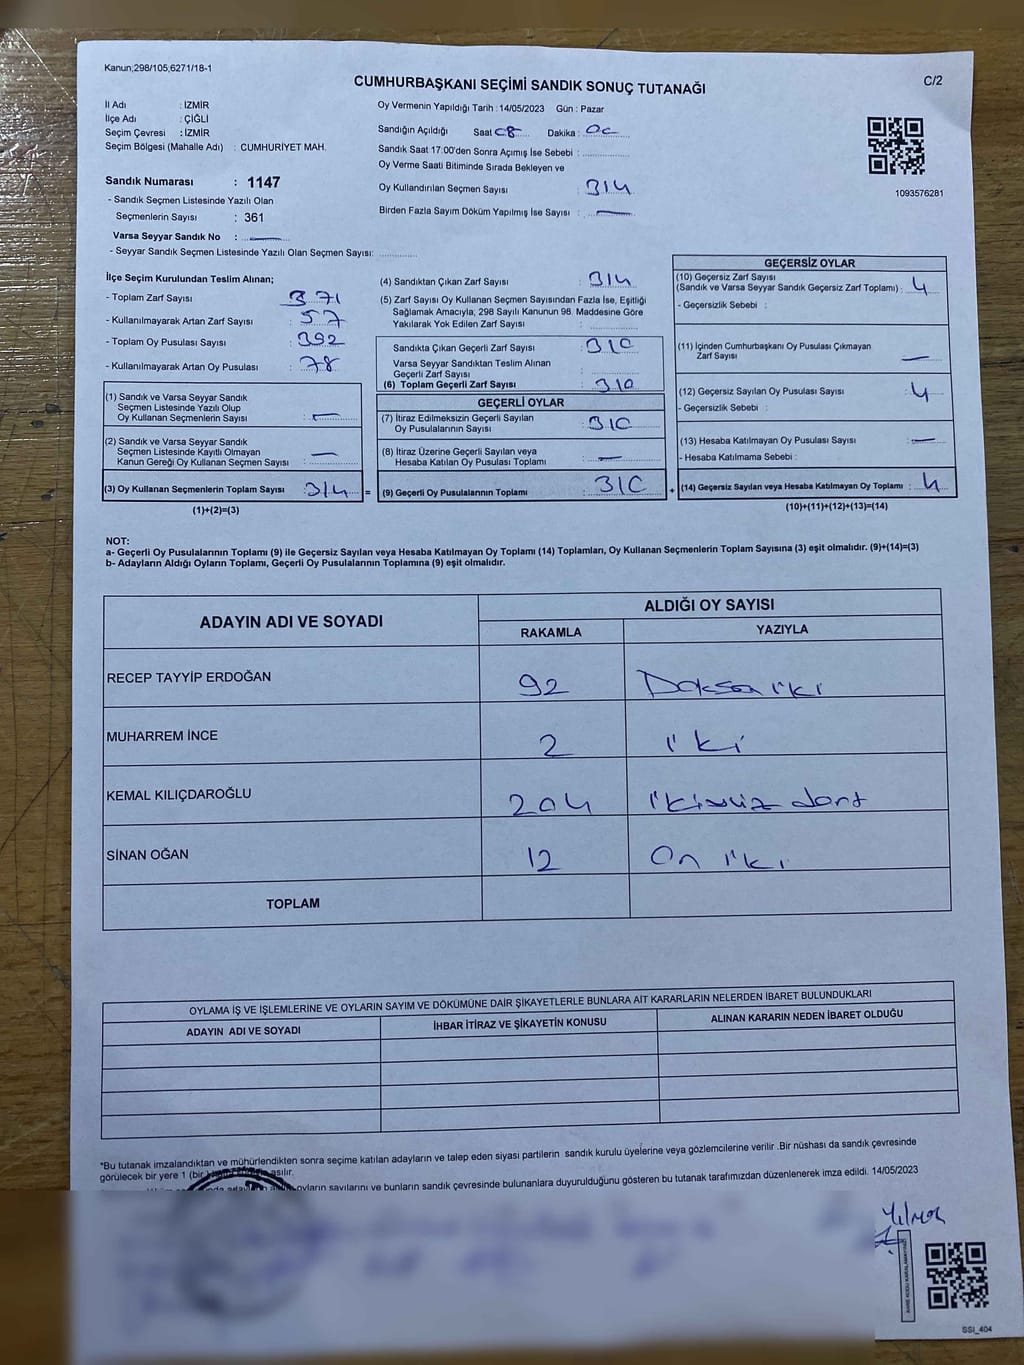 Kanun;298/105,6271/18-1
CUMHURBAŞKANI SEÇİMİ SANDIK SONUÇ TUTANAĞI
C/2
İl Adı : İZMİR
İlçe Adı : ÇİĞLİ
Seçim Çevresi : İZMİR
Seçim Bölgesi (Mahalle Adı) : CUMHURİYET MAH.
Sandık Numarası : 1147
- Sandık Seçmen Listesinde Yazılı Olan
Seçmenlerin Sayısı : 361
Varsa Seyyar Sandık No : —
- Seyyar Sandık Seçmen Listesinde Yazılı Olan Seçmen Sayısı:
Oy Vermenin Yapıldığı Tarih : 14/05/2023 Gün : Pazar
Sandığın Açıldığı Saat 08 Dakika : 00
Sandık Saat 17:00'den Sonra Açımış İse Sebebi :
Oy Verme Saati Bitiminde Sırada Bekleyen ve
Oy Kullandırılan Seçmen Sayısı : 314
Birden Fazla Sayım Döküm Yapılmış İse Sayısı : —
1093576281
İlçe Seçim Kurulundan Teslim Alınan;
- Toplam Zarf Sayısı : 371
- Kullanılmayarak Artan Zarf Sayısı : 57
- Toplam Oy Pusulası Sayısı : 392
- Kullanılmayarak Artan Oy Pusulası : 78
(1) Sandık ve Varsa Seyyar Sandık
Seçmen Listesinde Yazılı Olup
Oy Kullanan Seçmenlerin Sayısı : —
(2) Sandık ve Varsa Seyyar Sandık
Seçmen Listesinde Kayıtlı Olmayan
Kanun Gereği Oy Kullanan Seçmen Sayısı : —
(3) Oy Kullanan Seçmenlerin Toplam Sayısı : 314 =
(1)+(2)=(3)
(4) Sandıktan Çıkan Zarf Sayısı : 314
(5) Zarf Sayısı Oy Kullanan Seçmen Sayısından Fazla İse, Eşitliği
Sağlamak Amacıyla, 298 Sayılı Kanunun 98. Maddesine Göre
Yakılarak Yok Edilen Zarf Sayısı :
Sandıkta Çıkan Geçerli Zarf Sayısı : 310
Varsa Seyyar Sandıktan Teslim Alınan
Geçerli Zarf Sayısı :
(6) Toplam Geçerli Zarf Sayısı : 310
GEÇERLİ OYLAR
(7) İtiraz Edilmeksizin Geçerli Sayılan
Oy Pusulalarının Sayısı : 310
(8) İtiraz Üzerine Geçerli Sayılan veya
Hesaba Katılan Oy Pusulası Toplamı : —
(9) Geçerli Oy Pusulalarının Toplamı : 310 +
GEÇERSİZ OYLAR
(10) Geçersiz Zarf Sayısı
(Sandık ve Varsa Seyyar Sandık Geçersiz Zarf Toplamı) : 4
- Geçersizlik Sebebi :
(11) İçinden Cumhurbaşkanı Oy Pusulası Çıkmayan
Zarf Sayısı —
(12) Geçersiz Sayılan Oy Pusulası Sayısı : 4
- Geçersizlik Sebebi :
(13) Hesaba Katılmayan Oy Pusulası Sayısı : —
- Hesaba Katılmama Sebebi :
(14) Geçersiz Sayılan veya Hesaba Katılmayan Oy Toplamı : 4
(10)+(11)+(12)+(13)=(14)
NOT:
a- Geçerli Oy Pusulalarının Toplamı (9) ile Geçersiz Sayılan veya Hesaba Katılmayan Oy Toplamı (14) Toplamları, Oy Kullanan Seçmenlerin Toplam Sayısına (3) eşit olmalıdır. (9)+(14)=(3)
b- Adayların Aldığı Oyların Toplamı, Geçerli Oy Pusulalarının Toplamına (9) eşit olmalıdır.
ADAYIN ADI VE SOYADI ALDIĞI OY SAYISI
RAKAMLA YAZIYLA
RECEP TAYYİP ERDOĞAN 92 Doksan iki
MUHARREM İNCE 2 iki
KEMAL KILIÇDAROĞLU 204 ikiyüz dört
SİNAN OĞAN 12 On iki
TOPLAM
OYLAMA İŞ VE İŞLEMLERİNE VE OYLARIN SAYIM VE DÖKÜMÜNE DAİR ŞİKAYETLERLE BUNLARA AİT KARARLARIN NELERDEN İBARET BULUNDUKLARI
ADAYIN ADI VE SOYADI İHBAR İTİRAZ VE ŞİKAYETİN KONUSU ALINAN KARARIN NEDEN İBARET OLDUĞU
*Bu tutanak imzalandıktan ve mühürlendikten sonra seçime katılan adayların ve talep eden siyasi partilerin sandık kurulu üyelerine veya gözlemcilerine verilir .Bir nüshası da sandık çevresinde
görülecek bir yere 1 (bir) asılır.
oyların sayılarını ve bunların sandık çevresinde bulunanlara duyurulduğunu gösteren bu tutanak tarafımızdan düzenlenerek imza edildi. 14/05/2023
Yılmaz
KARE KODU KARALAMAYINIZ
SSI_404